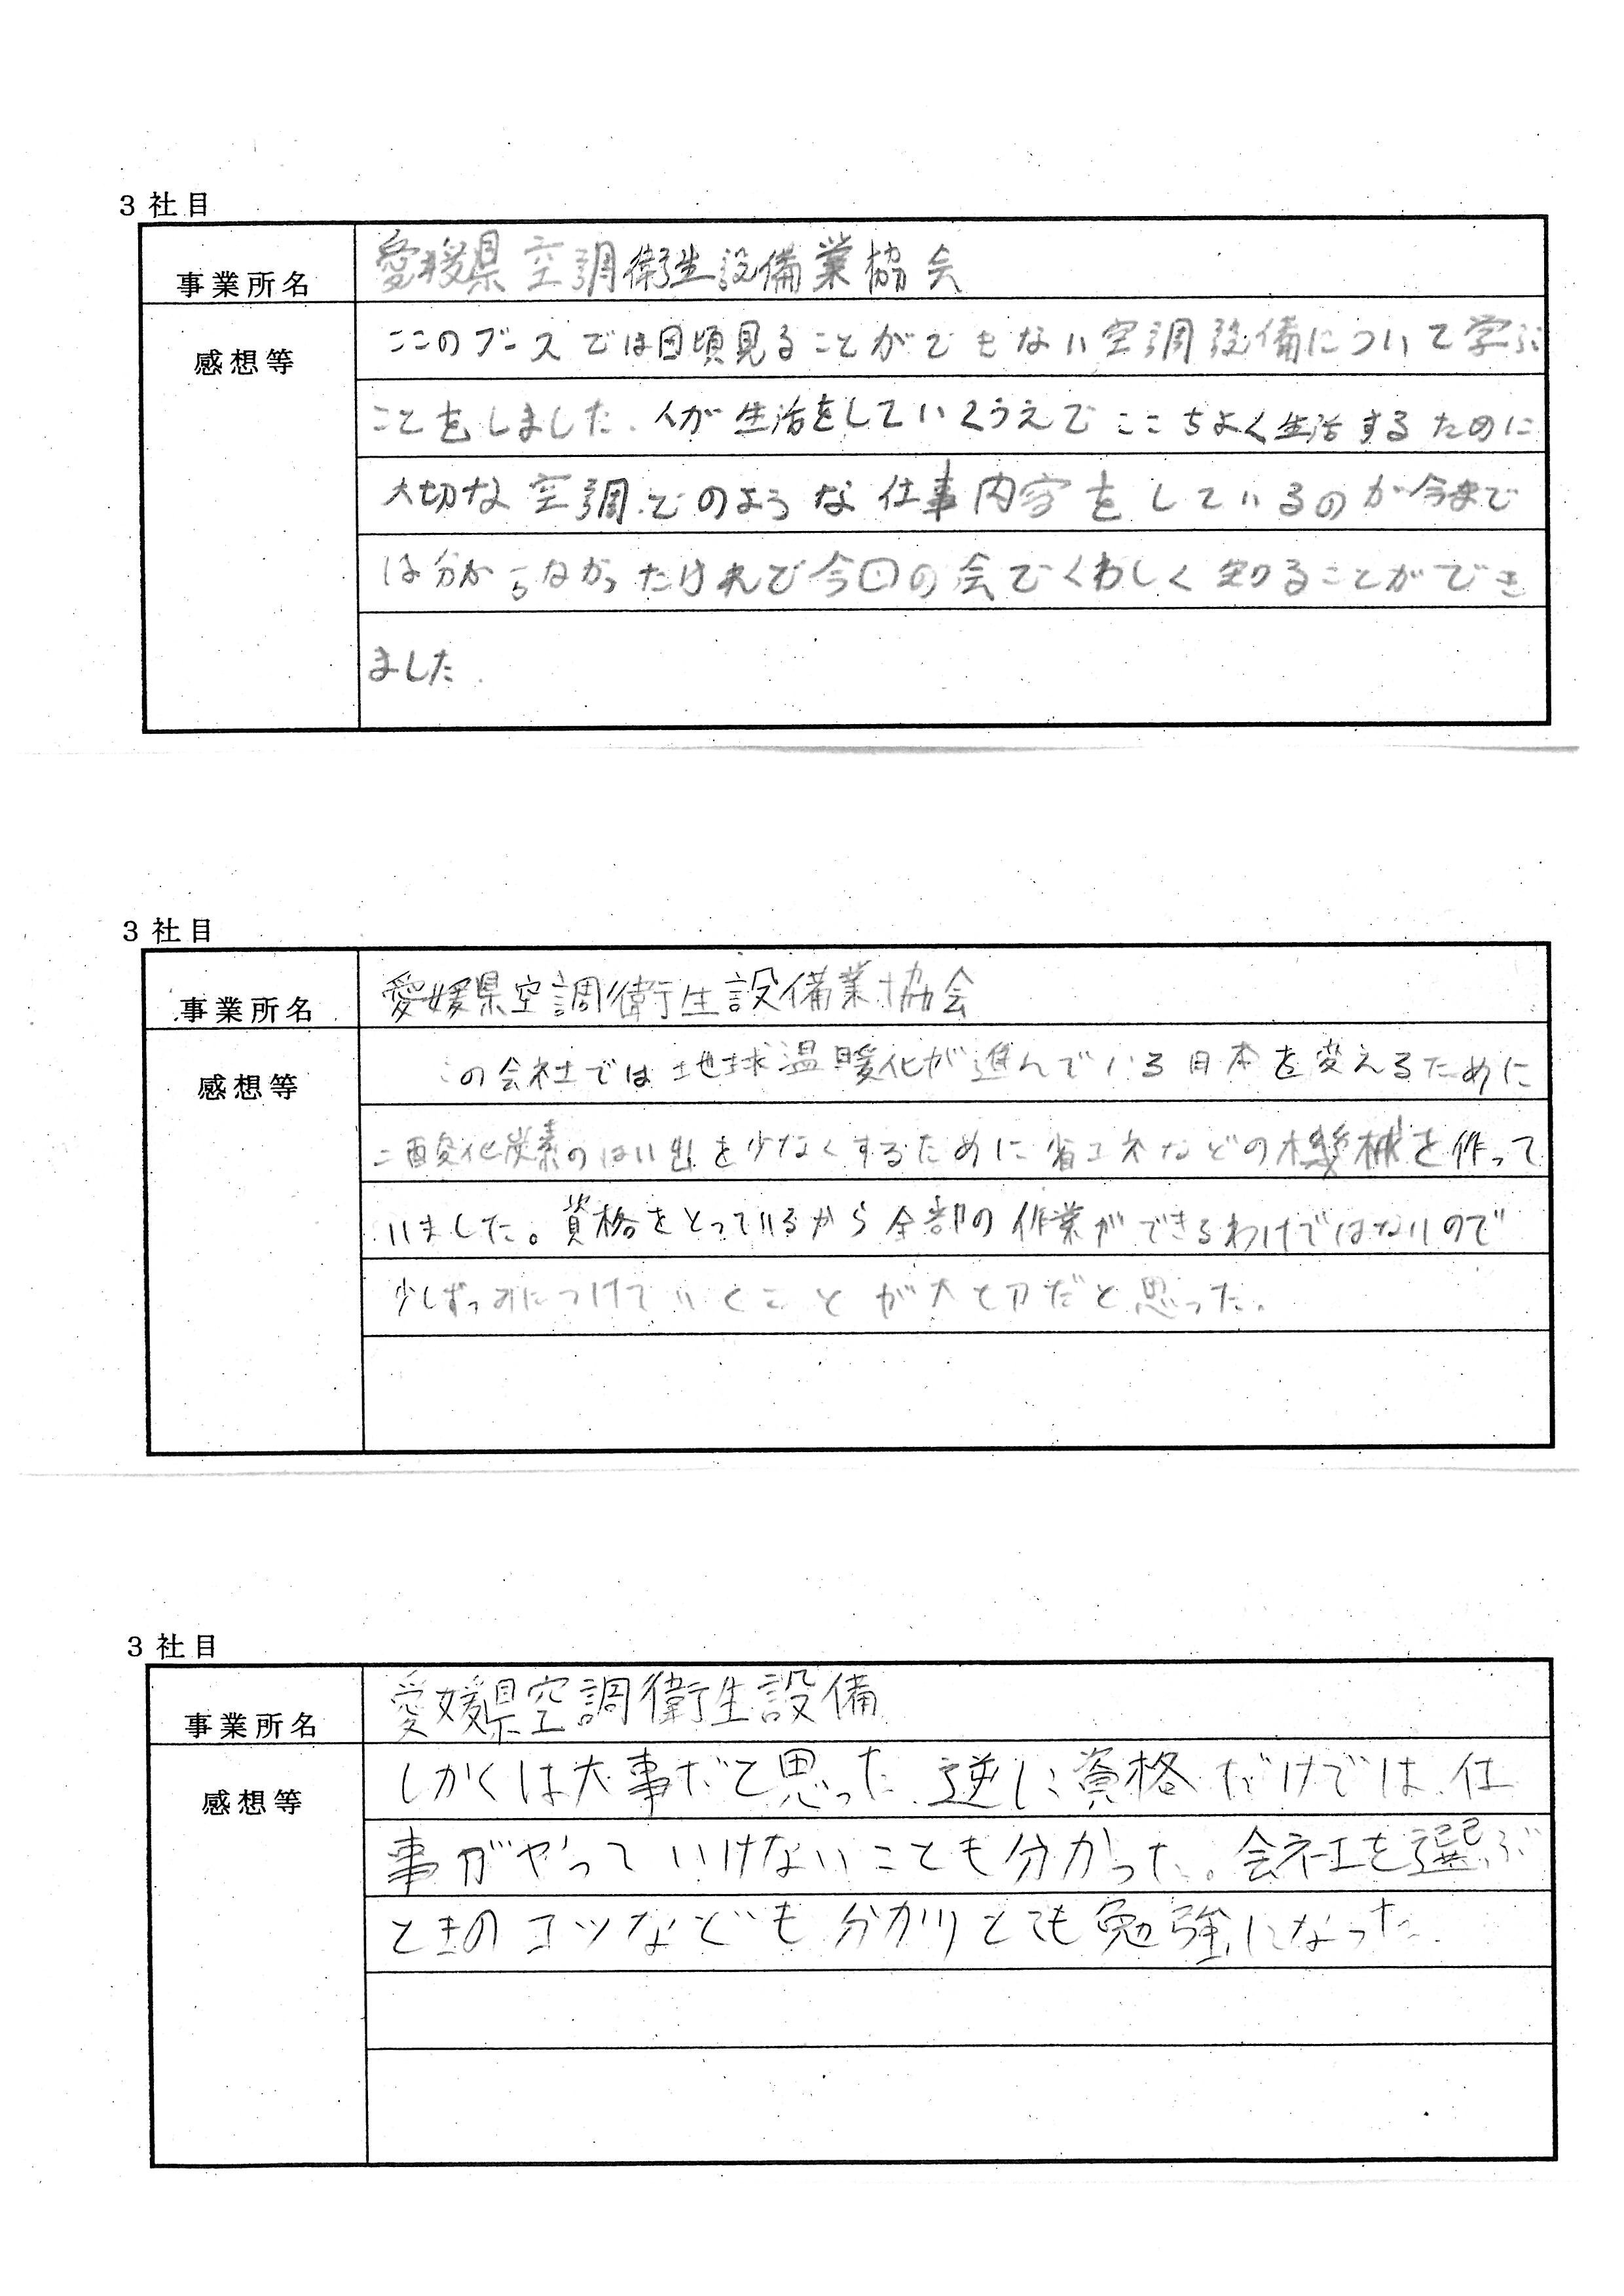 3 社目
事業所名
愛媛県空調衛生設備業協会
感想等
ここのブースでは日頃見ることがでもない空調設備について学ぶ
ことをしました.人が生活をしていくうえでここちよく生活するために
大切な空調.どのような仕事内容をしているのが今まで
は分からなかったけれど今回の会でくわしく知ることができ
ました.
3 社目
事業所名
愛媛県空調衛生設備業協会
感想等
この会社では地球温暖化が進んでいる日本を変えるために
二酸化炭素のはい出を少なくするために省エネなどの機械を作って
いました。資格をとっているから全部の作業ができるわけではないので
少しずつ身につけていくことが大切だと思った.
3 社目
事業所名
愛媛県空調衛生設備
感想等
しかくは大事だと思った.逆に資格だけでは仕
事がやっていけないことも分かった。会社を選ぶ
ときのコツなども分かりとても勉強になった.